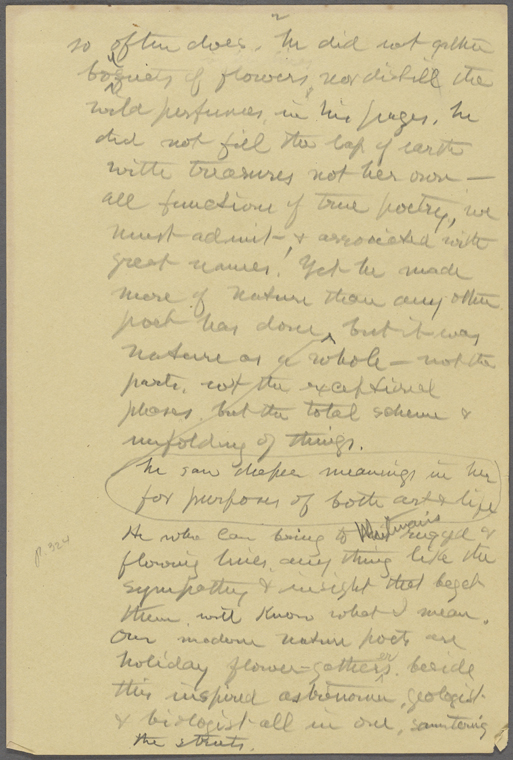 so often does. He did not gather
boquets of flowers, nor distill the
wild perfumes, in his pages. he
did not fill the lap of earth
with treasures not her own —
all functions of true poetry, we
must admit, & associated with
great names! Yet he made
more of Nature than any other
poet has done, but it was
nature as a whole — not the
parts, not the exceptional
phases, but the total scheme &
unfolding of things.
he saw deeper meanings in her
for purposes of both art & life
He who can bring to Whitman's rugged &
flowing lines anything like the
sympathy & insight that beget
them, will know what I mean.
Our modern nature poets are
holiday flower-gatherers beside
this inspired astronomer, geologist
& biologist all in one, sauntering
the streets.
p. 324